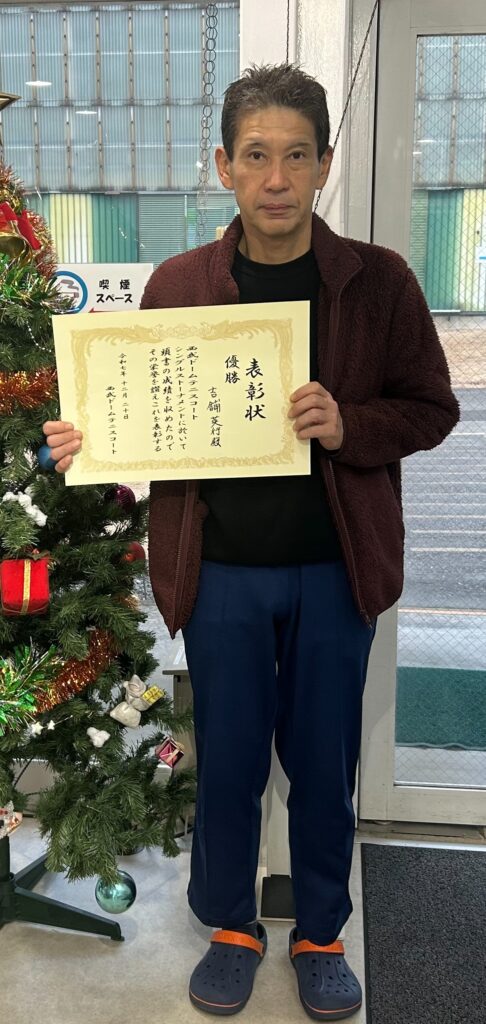 喫煙
スペース
表彰状
優勝
吉舗英行殿
西武ドームテニスコート
シングルストーナメントに於いて
頭書の成績を収めたので
その栄誉を讃えこれを表彰する
令和七年十二月二十日
西武ドームテニスコート